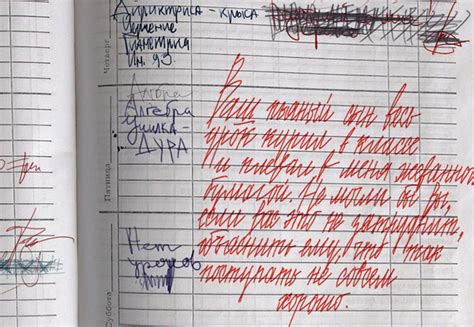 Дириктриса - крыса
Черчение
Геометрия
п. 93
Четверг
Алгебра
училка -
ДУРА
Пятница
Нет
уроков
Суббота
Ваш пьяный сын весь
урок курил в классе
и плевал в меня жеванной
бумагой. Не могли бы вы,
если вас это не затруднит,
объяснить ему, что так
поступать не совсем
хорошо.